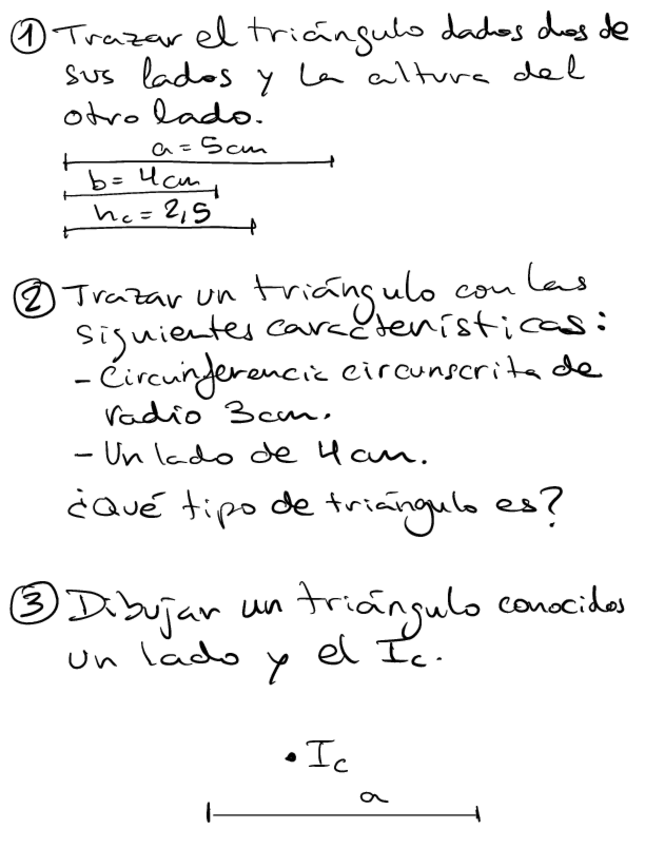 ① Trazar el triángulo dados dos de
sus lados y la altura del
otro lado.
a = 5cm
b = 4cm
hc = 2,5
② Trazar un triángulo con las
siguientes características:
- Circunferencia circunscrita de
radio 3cm.
- Un lado de 4cm.
¿Qué tipo de triángulo es?
③ Dibujar un triángulo conocidos
un lado y el Ic.
• Ic
a